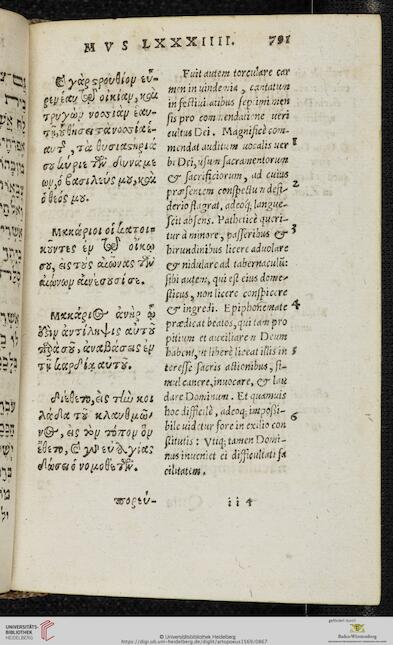 MVS LXXXIIII. 791
Καὶ γὰρ στρουθίον εὗ-
ρεν ἑαυτῷ οἰκίαν, καὶ
τρυγὼν νοσσιὰν ἑαυ-
τῇ,
αυτῆς, τὰ θυσιαστήριά
σου κύριε τῶν δυνάμε
ων, ὁ βασιλεύς μου, καὶ
ὁ θεός μου.
Μακάριοι οἱ κατοικ-
οῦντες ἐν τῷ οἴκῳ
σου, εἰς τοὺς αἰῶνας τῶν
αἰώνων αἰνέσουσί σε.
Μακάριος ἀνὴρ ᾧ
ἐστιν ἀντίληψις αὐτοῦ
παρὰ σοῦ, ἀναβάσεις ἐν
τῇ καρδίᾳ αὐτοῦ.
διέθετο, εἰς τὴν κοι
λάδα τοῦ κλαυθμῶν
νος, εἰς τὸν τόπον ὃν
ἔθετο, καὶ γὰρ εὐλογίας
δώσει ὁ νομοθετῶν.
πορεύ-
Fuit autem torculare car
men in vindemia, cantatum
in festiuitatibus septimi men
sis pro commendatione veri
cultus Dei. Magnificè com-
mendat auditum vocalis ver
bi Dei, usum sacramentorum
& sacrificiorum, ad cuius
præsentem conspectum desi-
derio flagrat, adeoq; langue-
scit absens. Patheticè queri-
tur à minore, passeribus &
hirundinibus licere aduolare
& nidulare ad tabernaculū:
sibi autem, qui est eius dome-
sticus, non licere conspicere
& ingredi. Epiphonemate
prædicat beatos, qui tam pro
pitium et auxiliarem Deum
habent, ut liberè liceat illis in
teresse sacris actionibus, si-
mul canere, inuocare, & lau
dare Dominum. Et quamuis
hoc difficilè, adeoq; impossi-
bile uidetur fore in exilio con
stitutis: Vtiq; tamen Domi-
nus inueniet ei difficultati fa
cilitatem.
1
2
3
4
5
6
ii 4
UNIVERSITÄTS-
BIBLIOTHEK
HEIDELBERG
© Universitätsbibliothek Heidelberg
https://digi.ub.uni-heidelberg.de/diglit/artopoeus1569/0867
gefördert durch
Baden-Württemberg